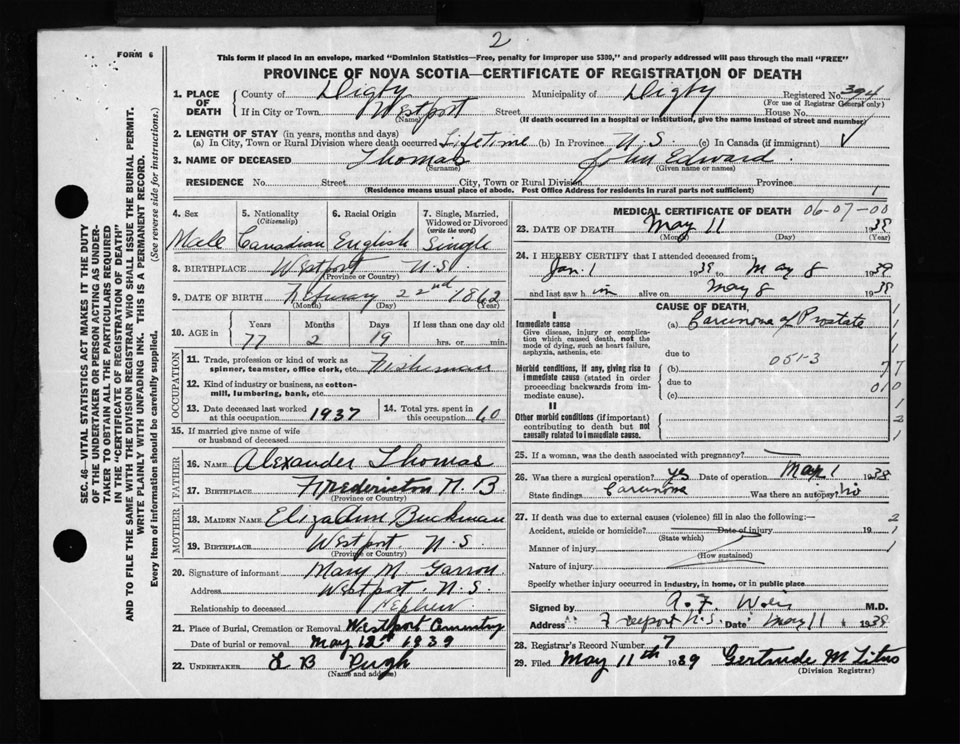 2
FORM 6
This form if placed in an envelope, marked "Dominion Statistics—Free, penalty for improper use $300," and properly addressed will pass through the mail "FREE"
PROVINCE OF NOVA SCOTIA—CERTIFICATE OF REGISTRATION OF DEATH
SEC. 46—VITAL STATISTICS ACT MAKES IT THE DUTY
OF THE UNDERTAKER OR PERSON ACTING AS UNDER-
TAKER TO OBTAIN ALL THE PARTICULARS REQUIRED
IN THE "CERTIFICATE OF REGISTRATION OF DEATH"
AND TO FILE THE SAME WITH THE DIVISION REGISTRAR WHO SHALL ISSUE THE BURIAL PERMIT.
WRITE PLAINLY WITH UNFADING INK. THIS IS A PERMANENT RECORD.
Every item of information should be carefully supplied. (See reverse side for instructions.)
1. PLACE OF DEATH County of Digby Municipality of Digby Registered No. 394
(For use of Registrar General only)
If in City or Town Westport Street House No.
(Name) (If death occurred in a hospital or institution, give the name instead of street and number)
2. LENGTH OF STAY (in years, months and days)
(a) In City, Town or Rural Division where death occurred Lifetime (b) In Province N S (c) In Canada (if immigrant)
3. NAME OF DECEASED Thomas John Edward
(Surname) (Given name or names)
RESIDENCE No. Street City, Town or Rural Division Province
(Residence means usual place of abode. Post Office Address for residents in rural parts not sufficient) 1
4. Sex 5. Nationality (Citizenship) 6. Racial Origin 7. Single, Married, Widowed or Divorced (write the word)
Male Canadian English Single
8. BIRTHPLACE Westport N.S.
(Province or Country)
9. DATE OF BIRTH 22nd 1862
(Month) (Day) (Year)
10. AGE in Years Months Days If less than one day old
77 2 19 hrs. or min.
OCCUPATION
11. Trade, profession or kind of work as
spinner, teamster, office clerk, etc. Fisherman
12. Kind of industry or business, as cotton-
mill, lumbering, bank, etc.
13. Date deceased last worked at this occupation 1937 14. Total yrs. spent in this occupation 60
15. If married give name of wife
or husband of deceased
FATHER
16. NAME Alexander Thomas
17. BIRTHPLACE Fredericton N. B
(Province or Country)
MOTHER
18. MAIDEN NAME Eliza Ann Buckman
19. BIRTHPLACE Westport. N.S.
(Province or Country)
20. Signature of informant Mary M. Garron
Address Westport. N.S.
Relationship to deceased Nephew.
21. Place of Burial, Cremation or Removal Westport Cemetry
Date of burial or removal May 12th 1939
22. UNDERTAKER L B Pugh
(Name and address)
MEDICAL CERTIFICATE OF DEATH 06-07-00
23. DATE OF DEATH May 11 1939
(Month) (Day) (Year)
24. I HEREBY CERTIFY that I attended deceased from:
Jan. 1 1939 to May 8 1939
and last saw h im alive on May 8 1939
CAUSE OF DEATH
I
Immediate cause (a) Carcinona of Prostate
Give disease, injury or complica-
tion which caused death, not the
mode of dying, such as heart failure,
asphyxia, asthenia, etc. due to
Morbid conditions, if any, giving rise to (b) 051-3
immediate cause (stated in order due to
proceeding backwards from im-
mediate cause). (c)
II
Other morbid conditions (if important)
contributing to death but not
causally related to immediate cause.
25. If a woman, was the death associated with pregnancy?
26. Was there a surgical operation? yes Date of operation May 1 1938
State findings Carcinona Was there an autopsy? no
27. If death was due to external causes (violence) fill in also the following:—
Accident, suicide or homicide? Date of injury 19
(State which)
Manner of injury
(How sustained)
Nature of injury
Specify whether injury occurred in industry, in home, or in public place
Signed by M.D.
Address Freeport N.S. Date May 11 1939
28. Registrar's Record Number 7
29. Filed May 11th 1939 Gertrude M Titus
(Division Registrar)